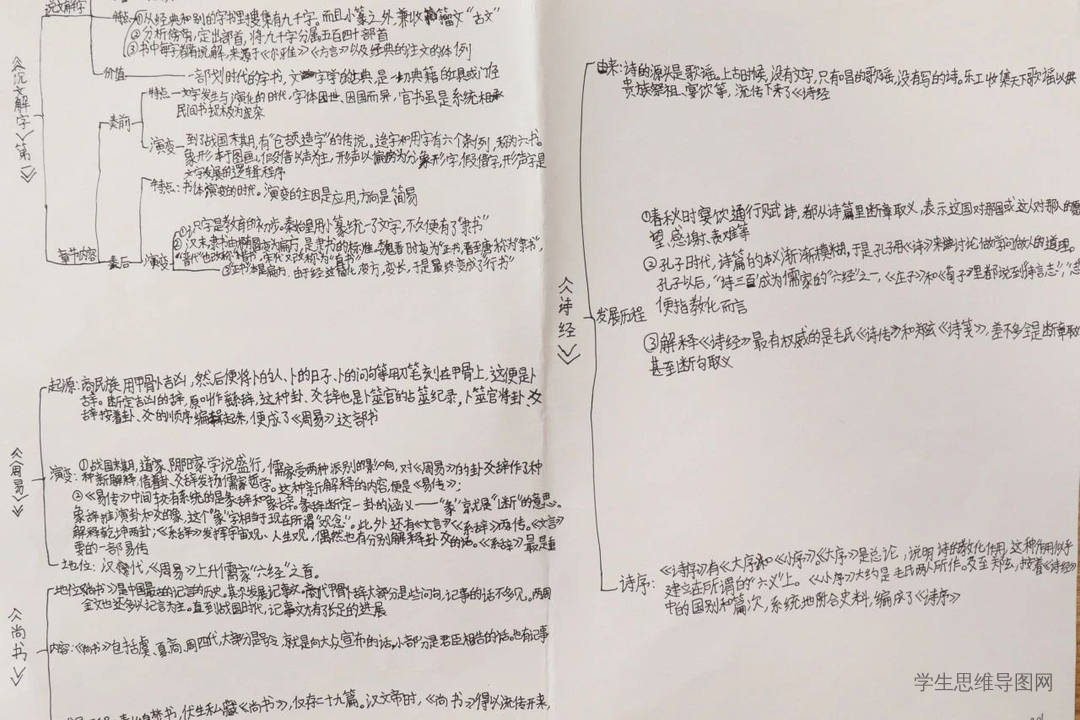 说文解字
特点
①从经典和别的字书里搜集有九千字。而且小篆之外,兼收籀文"古文"
②分析偏旁,定出部首,将九千字分属五百四十部首
③书中每字都有说解,来源于《尔雅》《方言》以及经典的注文的体例
价值
一部划时代的字书,文字学的古典,是一切典籍的工具或门径
《说文解字》第一
章节内容
秦前
特点
文字发生与演化的时代,字体因世、因国而异,官书虽是系统相承
民间书却极为庞杂
演变
到了战国末期,有"仓颉造字"的传说。造字和用字有六个条例,称为六书。
象形本于图画,假借以声为主,形声以偏旁为分,象形字,假借字,形声字是
文字发展的逻辑程序
秦后
特点:书体演变的时代。演变的主因是应用,方向是简易
演变
①识字是教育的初步。秦始皇用小篆统一了文字,不久便有了"隶书"
②汉末,隶书
③正书本是扁方,由于经
变方,变长,于是最终变成了行书"
《周易》
起源:商民族用甲骨卜吉凶,然后便将卜的人、卜的日子、卜的问句等用刀笔刻在甲骨上,这便是卜
辞。断定吉凶的辞,原叫作繇辞,这种卦、爻辞也是卜筮官的占筮纪录,卜筮官将卦、爻
辞按着卦、爻的顺序编辑起来,便成了《周易》这部书
演变:①战国末期,道家、阴阳家学说盛行,儒家受两种派别的影响,对《周易》的卦爻辞作了种
种新解释,借着卦、爻辞发扬儒家哲学。这种新解释的内容,便是《易传》;
②《易传》中间较有系统的是彖辞和象辞。彖辞断定一卦的涵义——"彖"就是"断"的意思。
象辞推演卦和爻的象,这个"象"字相当于现在所谓"观念"。此外还有《文言》《系辞》两传。《文言》
解释乾坤两卦;《系辞》发挥宇宙观、人生观,偶然也有分别解释卦爻的话。《系辞》最是重
要的一部易传
地位:汉代,《周易》上升儒家"六经"之首。
《尚书》
地位:《尚书》是中国最古的记言的历史。其余发展记事文。商代甲骨卜辞大部分是些问句,记事的话不多见。两周
金文也还多以记言为主。直到战国时代,记事文才有了长足的进展
内容:《尚书》包括虞、夏、商、周四代,大部分是号令,就是向大众宣布的话,小部分是君臣相告的话。也有记事
焚书,伏生私藏《尚书》,仅存二十九篇。汉文帝时,《尚书》得以流传开来,
《诗经》
由来:诗的源头是歌谣。上古时候,没有文字,只有唱的歌谣,没有写的诗。乐工收集天下歌谣以供
贵族祭祖、宴饮等,流传下来了《诗经
发展历程
①春秋时宴饮通行赋诗,都从诗篇里断章取义,表示这国对那国或这人对那人的愿
望、感谢、责难等
②孔子时代,诗篇的本义渐渐模糊,于是孔子用《诗》来讨论做学问做人的道理。
孔子以后,"诗三百"成为儒家的"六经"之一,《庄子》和《荀子》里都说到"诗言志",
便指教化而言
③解释《诗经》最有权威的是毛氏《诗传》和郑玄《诗笺》,差不多全是断章取
甚至断句取义
诗序:
《诗序》有《大序》和《小序》。《大序》是总论,说明诗的教化作用,这种作用似乎
建立在所谓的"六义"上。《小序》大约是毛氏两人所作。及至郑玄,按着《诗经》
中的国别和篇次,系统地附合史料,编成了《诗序》
学生思维导图网